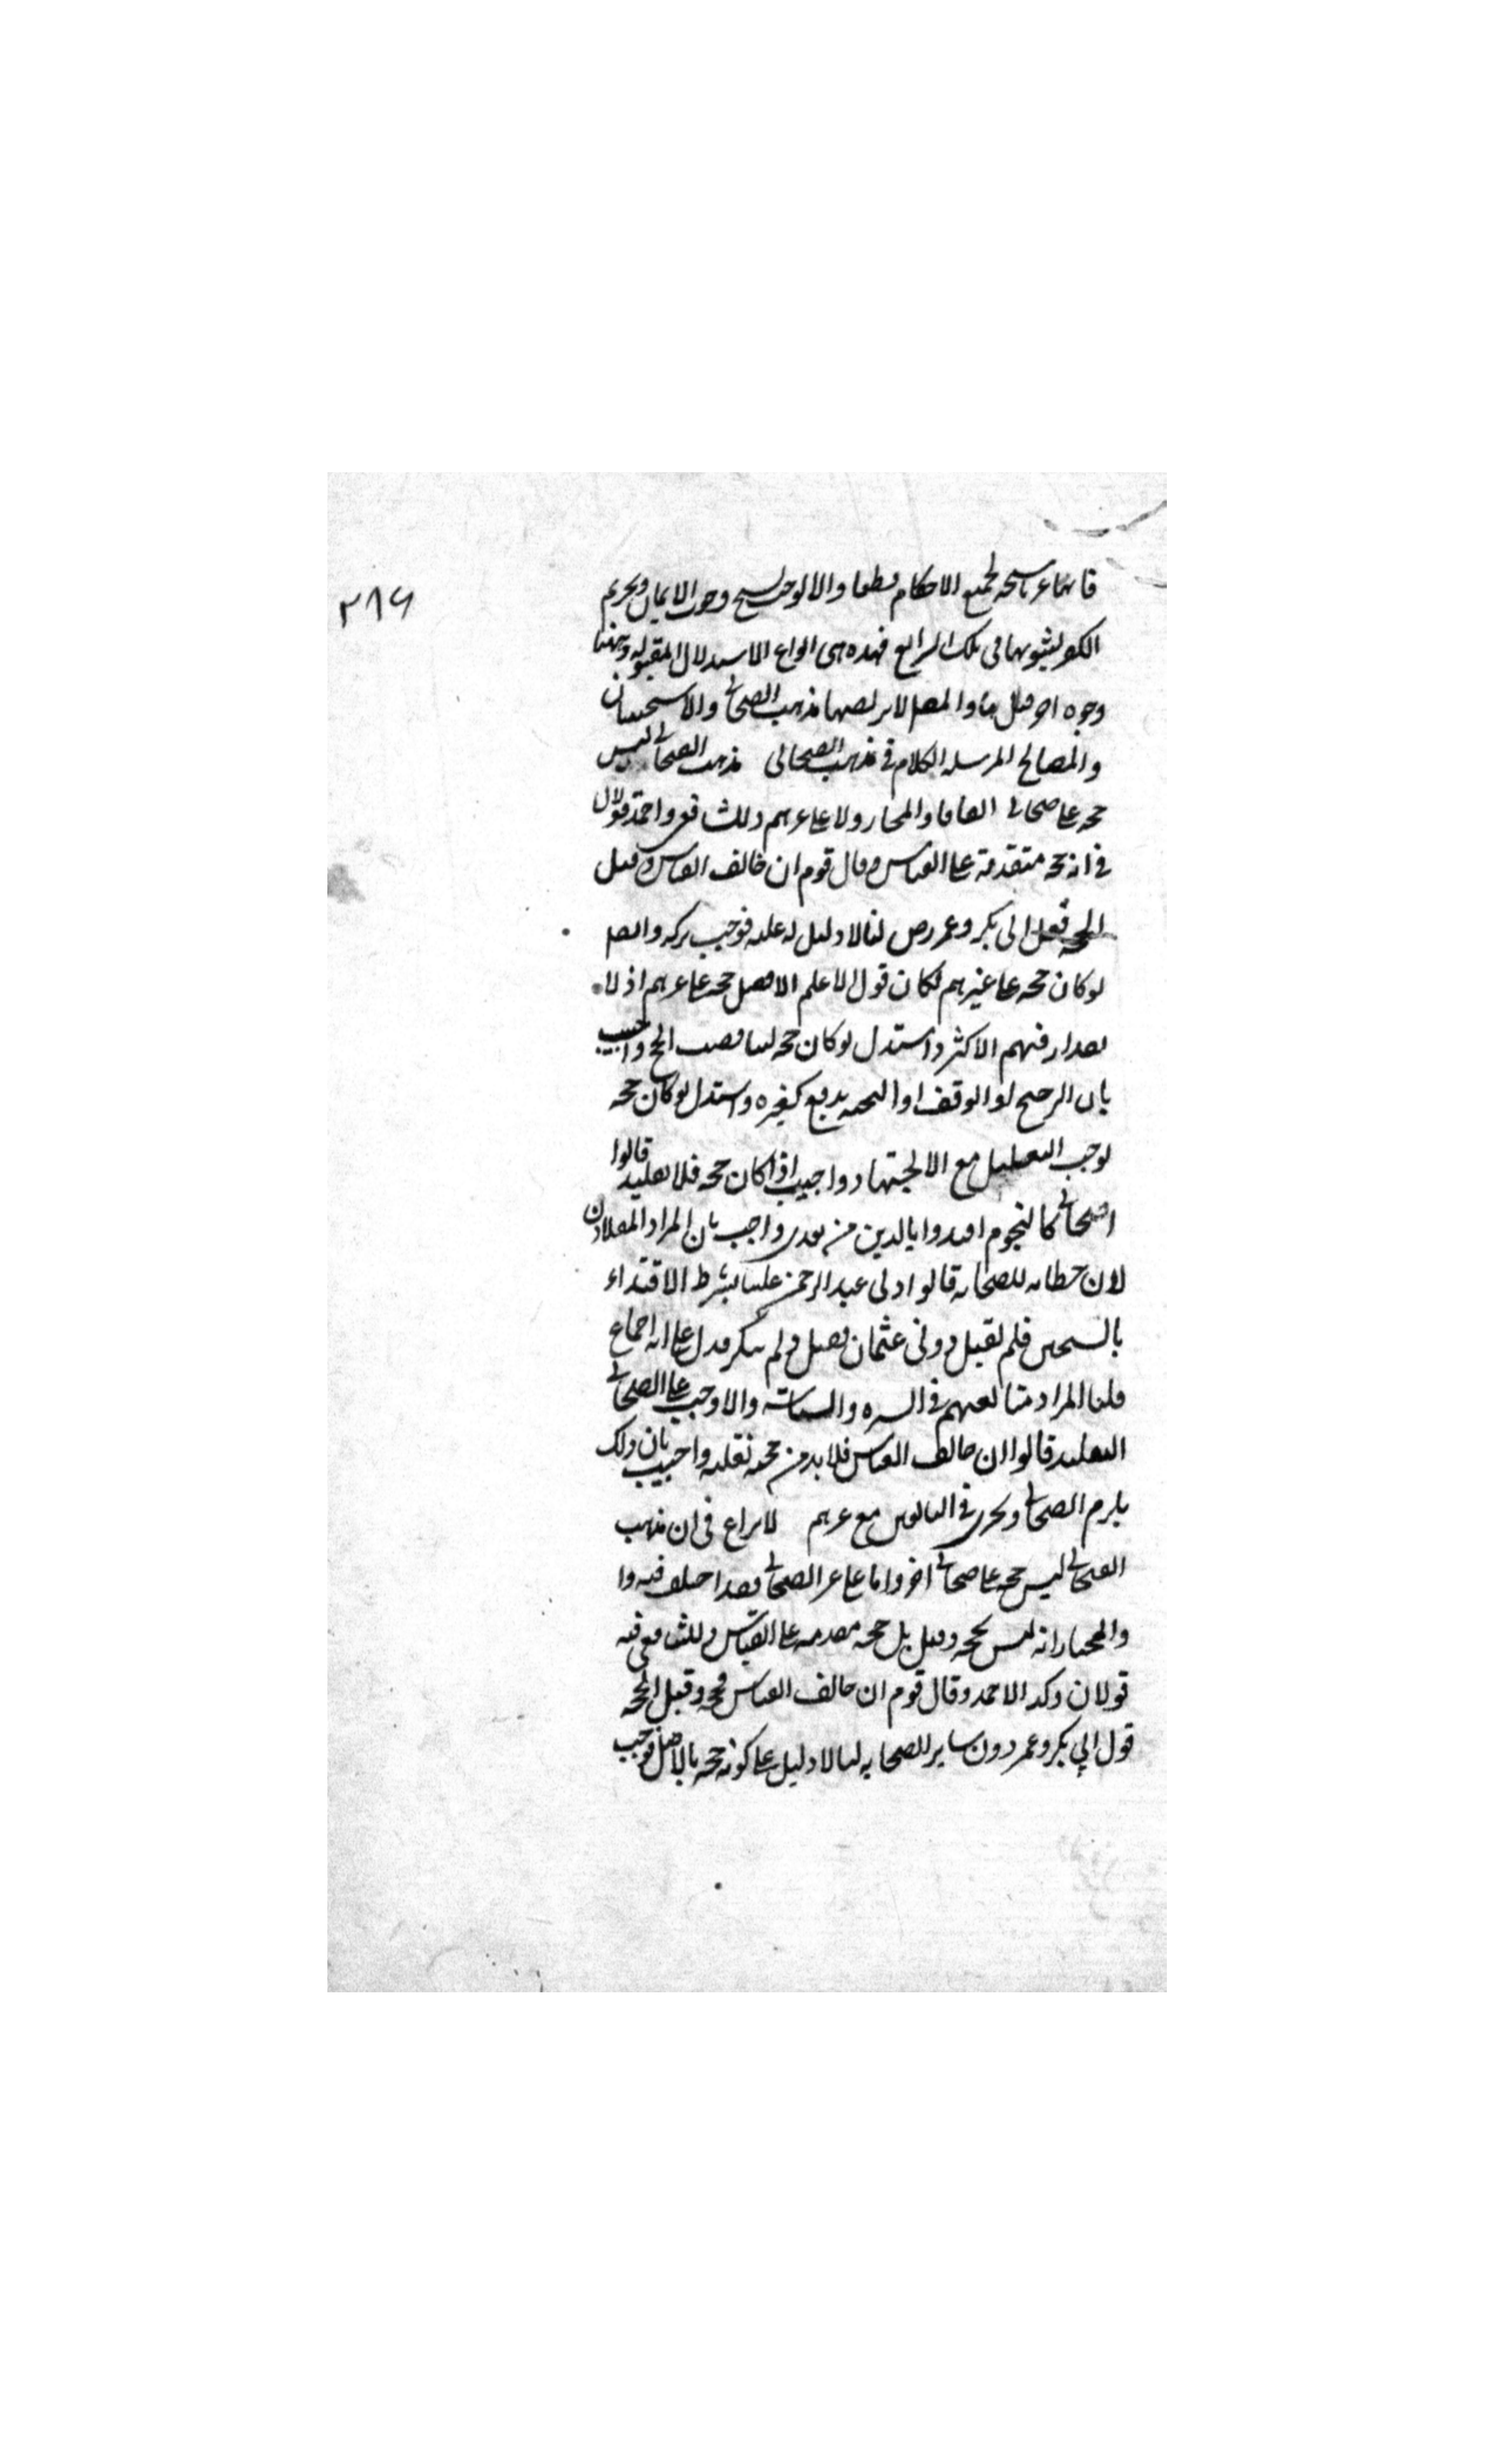 فانها غير ناسخة لجميع الاحكام قطعا والا لوجب نسخ وجوب الايمان وتحريم
الكفر لثبوتهما فى تلك الشرايع فهذه هى انواع الاستدلال المقبولة وههنا
وجوه اخر قيل بها والمصـ لا يرتضيها مذهب الصحابى والاستحسان
والمصالح المرسلة الكلام فى مذهب الصحابى مذهب الصحابى ليس
حجة على صحابى اتفاقا والمختار ولا على غيرهم وللشافعى واحمد قولان
فى انه حجة متقدمة على القياس وقال قوم ان خالف القياس وقيل
الحجة قول ابى بكر وعمر رض لنا لا دليل له عليه فوجب تركه وايضا
لو كان حجة على غيرهم لكان قول الاعلم الافضل حجة على غيرهم اذ لا
يقدر فيهم الاكثر واستدل لو كان حجة لتناقضت الحجج واجيب
بان الترجيح او الوقف او التخيير يدفع كغيره واستدل لو كان حجة
لوجب التقليد مع الاجتهاد واجيب اذا كان حجة فلا تقليد قالوا
اصحابى كالنجوم اقتدوا بالذين من بعدى واجيب بان المراد المقلدون
لان خطابه للصحابة قالوا ولى عبد الرحمن عليا بشرط الاقتداء
بالشيخين فلم يقبل وولى عثمان فقبل ولم ينكر فدل على انه اجماع
قلنا المراد متابعتهم فى السيرة والسياسة والا وجب على الصحابى
التقليد قالوا ان خالف القياس فلا بد من حجة نقلية واجيب بان ذلك
يلزم الصحابى ويجرى فى التابعين مع غيرهم لا نزاع فى ان مذهب
الصحابى ليس حجة على صحابى اخر واما على غير الصحابى فقد اختلف فيه وا
والمختار انه ليس بحجة وقيل بل حجة مقدمة على القياس وللشافعى فيه
قولان وكذا لاحمد وقال قوم ان خالف القياس فحجة وقيل الحجة
قول ابى بكر وعمر دون ساير الصحابه لنا لا دليل على كونه حجة بالاصل فوجب
٢٨٦